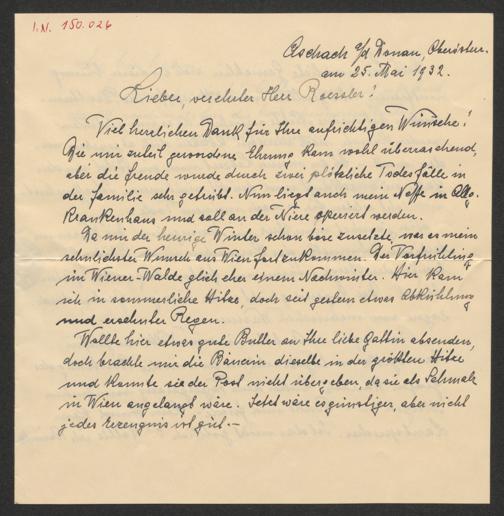 I.N. 150.026
Aschach a/d Donau, Oberösterr.
am 25. Mai 1932.
Lieber, verehrter Herr Roessler!
Viel herzlichen Dank für Ihre aufrichtigen Wünsche!
Die mir zuteil gewordene Ehrung kam wohl überraschend,
aber die Freude wurde durch zwei plötzliche Todesfälle in
der Familie sehr getrübt. Nun liegt auch mein Neffe im Allg.
Krankenhaus und soll an der Niere operiert werden.
Da mir der heurige Winter schon böse zusetzte, war es mein
sehnlichster Wunsch aus Wien fortzukommen. Der Vorfrühling
im Wiener-Walde glich eher einem Nachwinter. Hier kam
ich in sommerliche Hitze, doch seit gestern etwas Abkühlung
und ersehnter Regen.
Wollte hier etwas gute Butter an Ihre liebe Gattin absenden,
doch brachte mir die Bäuerin dieselbe in der größten Hitze
und konnte sie der Post nicht übergeben, da sie als Schmalz
in Wien angelangt wäre. Jetzt wäre es günstiger, aber nicht
jedes Erzeugnis ist gut.-